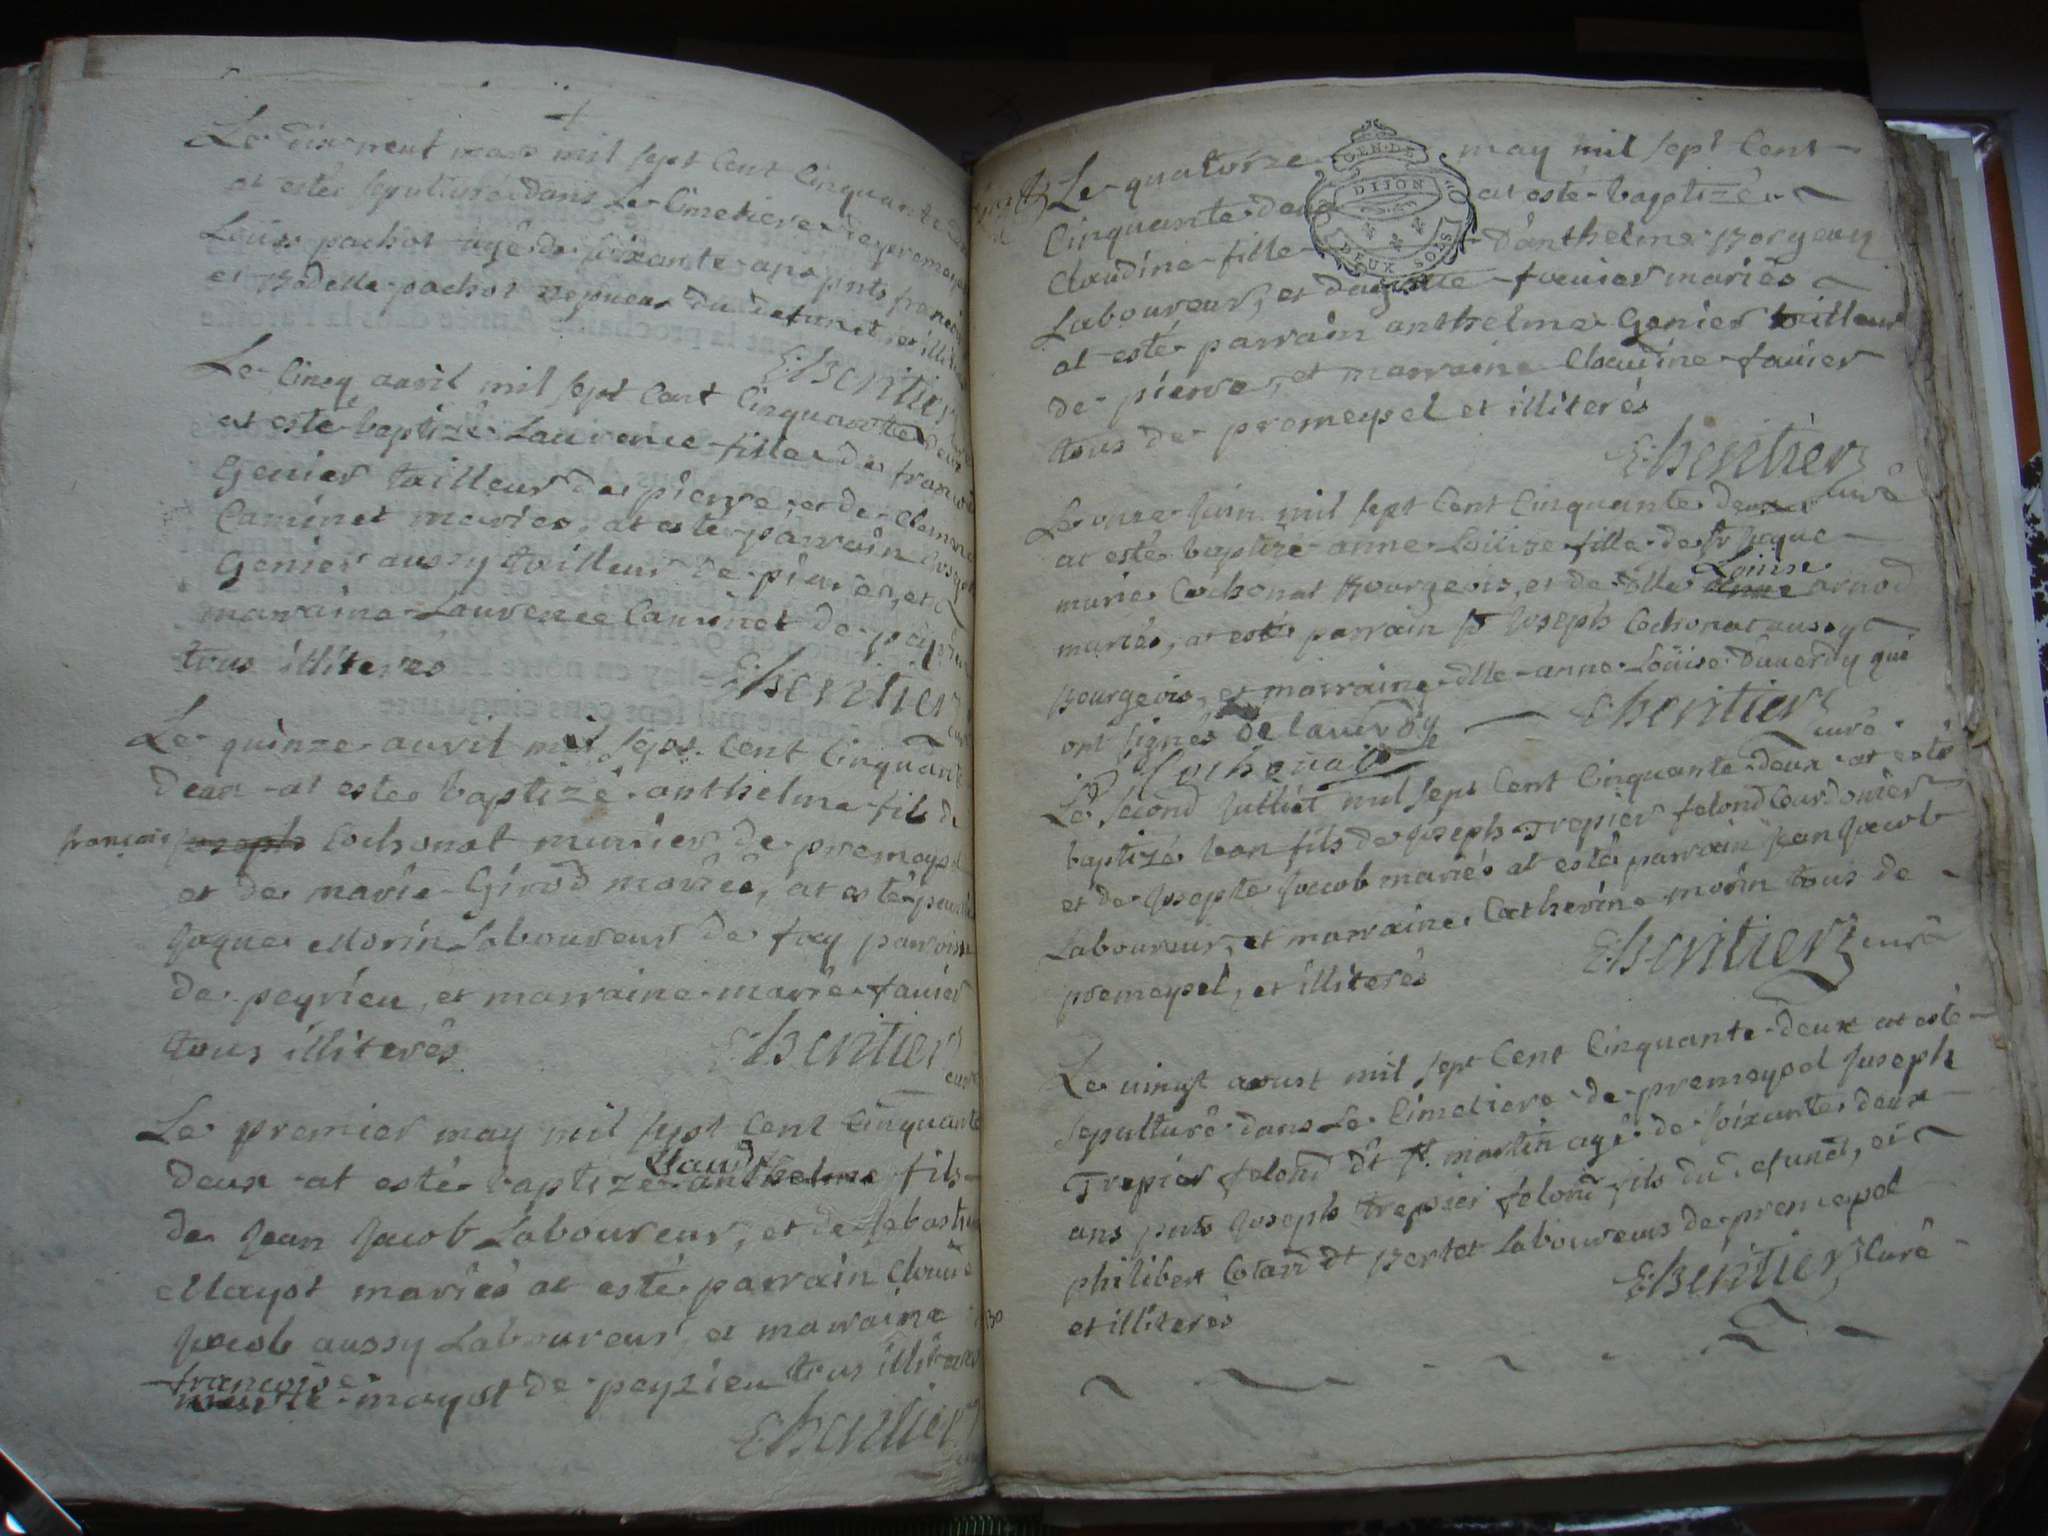 Le dixneuf mars mil sept Cent Cinquante
at estée sepulturé dans Le Cimetiere de premeysel
Loüis pachot agé de soixante ans pnts francois
et pachot nepueus du defunct, et
E: lheritier
Le Cinq auvril mil sept Cent Cinquante deux
at esté baptizé Laurence fille de francois
Genier tailleur de pierre, et de Clemence
Caminet mariés, at esté parrain Joseph
Genier aussy tailleur de pierre, et
marraine Laurence Caminet de
tous illiterés
E: lheritier
curé
Le quinze auvril mil sept Cent Cinquante
deux at estée baptizé anthelme fils de
françois joseph Cochonat munier de premeysel
et de marie Girod mariés, at esté parrain
Jaque Morin Laboureur de fay parroisse
de peyrieu, et marraine marie fauier
tous illiterés
E: lheritier
curé
Le premier may mil sept Cent Cinquante
Claude
deux at esté baptizé anthelme fils
de Jean Jacob Laboureur, et de sebastienne
Mayot mariés at esté parrain Claude
Jacob aussy Laboureur et marraine
françoise
mayot de peyzieu tous illiterés
E: lheritier
GEN. DE
DIJON
DEUX SOLS
Le quatorze may mil sept Cent
Cinquante deux at esté baptizé
Claudine fille d'anthelme Borgeay
Laboureur, et fauier mariés
at esté parrain anthelme Genier tailleur
de pierre, et marraine Claudine fauier
tous de premeysel et illiterés
E: lheritier
curé
Le onze Juin mil sept Cent Cinquante deux
at esté baptizé anne Loüize fille de Sr Jaque
Loüise
marie Cochonat Bourgeois, et de dlle anne arnod
mariés, at esté parrain Sr Joseph Cochonat aussy
Bourgeois, et marraine dlle anne Loüise Duuerdy qui
ont signés De lauerdy E lheritier
curé
Cochonat
Le second Julliet mil sept Cent Cinquante deux at esté
baptizé ban fils de Joseph Trepier felond Courdonier
et de Josephte Jacob mariés at esté parrain Jean Jacob
Laboureur, et marraine Catherine morin tous de
premeysel, et illiterés
E: lheritier curé
Le vingt aoust mil sept Cent Cinquante deux at esté
sepulturé dans Le Cimetiere de premeysel Joseph
Trepier felond dt St. martin agé de soixante deux
ans pnts Joseph trepier felond fils du defunct, et
philibert Cotard dt pertet Laboureurs de premeysel
et illiterés
E: lheritier Curé